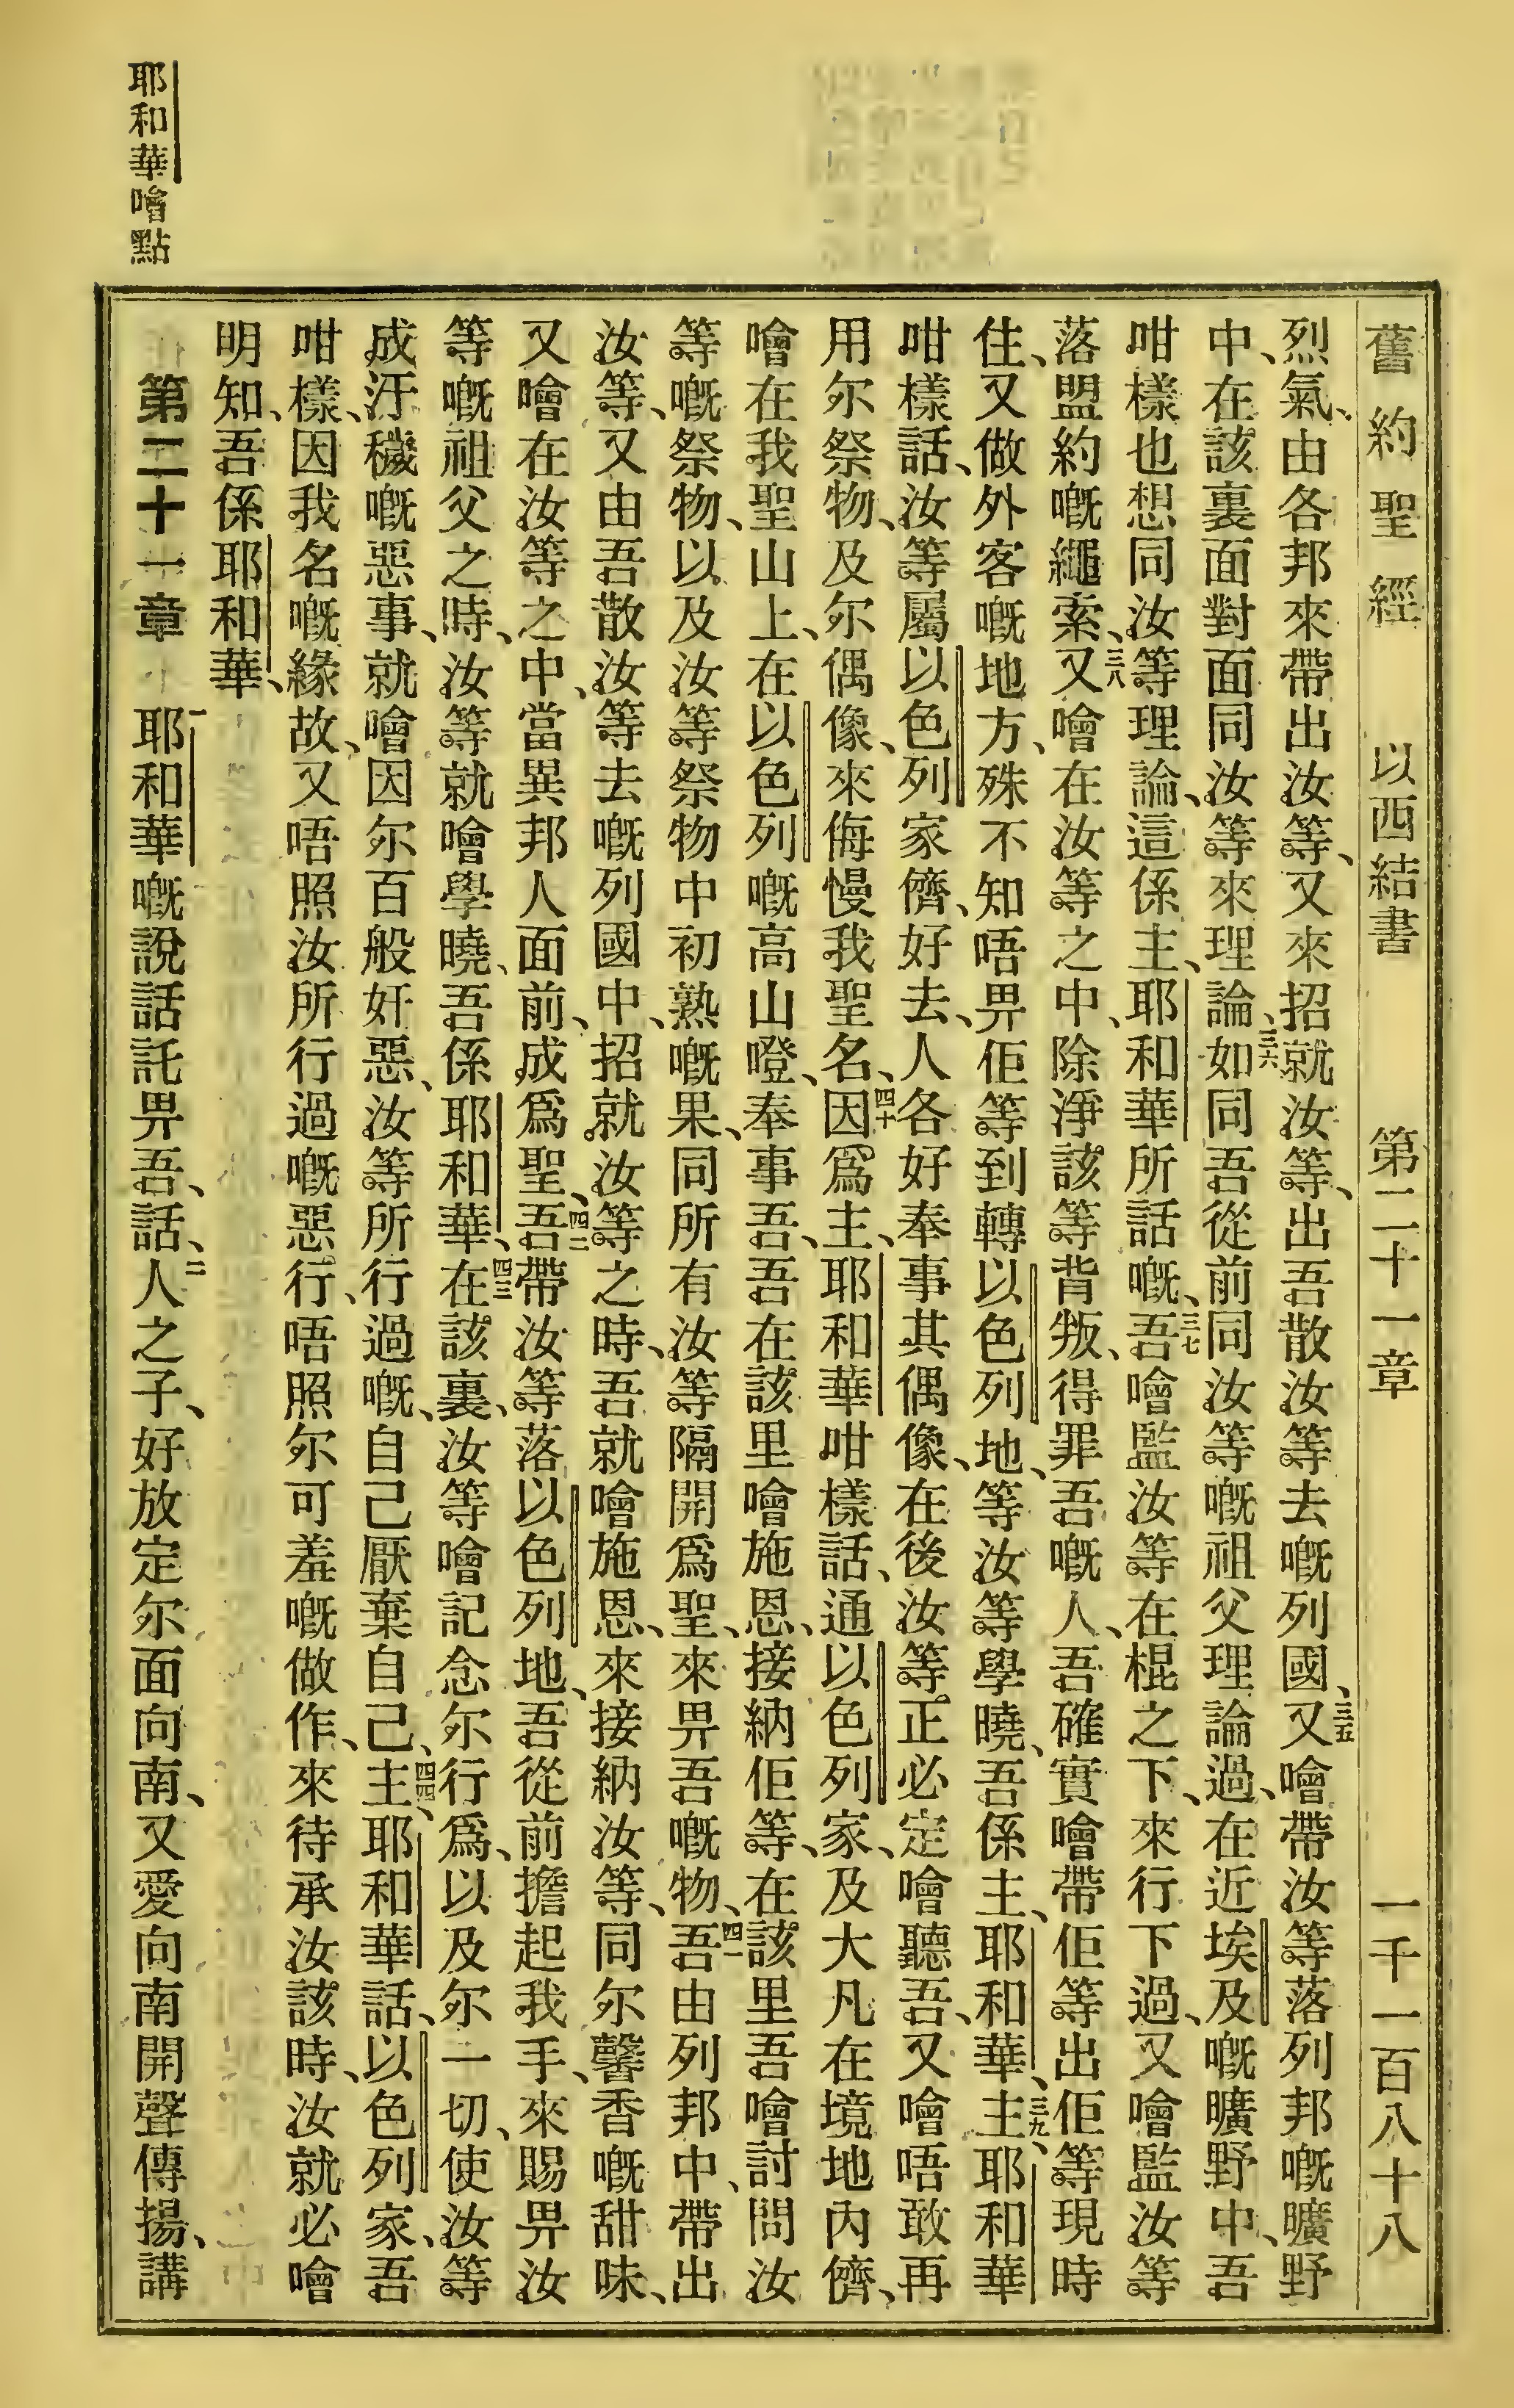 舊約聖經　以西結書　第二十一章　一千一百八十八
烈氣、由各邦來帶出汝等、又來招就汝等、出吾散汝等去嘅列國、三五又噲帶汝等落列邦嘅曠野
中、在該裏面對面同汝等來理論、三六如同吾從前同汝等嘅祖父理論過、在近埃及嘅曠野中、吾
咁樣也想同汝等理論、這係主、耶和華所話嘅、三七吾噲監汝等在棍之下、來行下過、又噲監汝等
落盟約嘅繩索、三八又噲在汝等之中、除淨該等背叛、得罪吾嘅人、吾確實噲帶佢等出佢等現時
住、又做外客嘅地方、殊不知唔畀佢等到轉以色列地、等汝等學曉、吾係主、耶和華、三九主、耶和華
咁樣話、汝等屬以色列家儕、好去、人各好奉事其偶像、在後汝等正必定噲聽吾、又噲唔敢再
用尔祭物、及尔偶像、來侮慢我聖名、四十因爲主、耶和華咁樣話、通以色列家、及大凡在境地內儕、
噲在我聖山上、在以色列嘅高山嶝、奉事吾、吾在該里噲施恩、接納佢等、在該里吾噲討問汝
等嘅祭物、以及汝等祭物中初熟嘅果、同所有汝等隔開爲聖、來畀吾嘅物、四一吾由列邦中、帶出
汝等、又由吾散汝等去嘅列國中、招就汝等之時、吾就噲施恩、來接納汝等、同尔馨香嘅甜味、
又噲在汝等之中、當異邦人面前、成爲聖、四二吾帶汝等落以色列地、吾從前擔起我手、來賜畀汝
等嘅祖父之時、汝等就噲學曉、吾係耶和華、四三在該裏、汝等噲記念尔行爲、以及尔一切、使汝等
成汙穢嘅惡事、就噲因尔百般奸惡、汝等所行過嘅、自己厭棄自己、四四主、耶和華話、以色列家、吾
咁樣、因我名嘅緣故、又唔照汝所行過嘅惡行、唔照尔可羞嘅做作、來待承汝該時、汝就必噲
明知、吾係耶和華、
第二十一章　一耶和華嘅說話託畀吾、話、二人之子、好放定尔面向南、又愛向南開聲傳揚、講
耶和華噲點